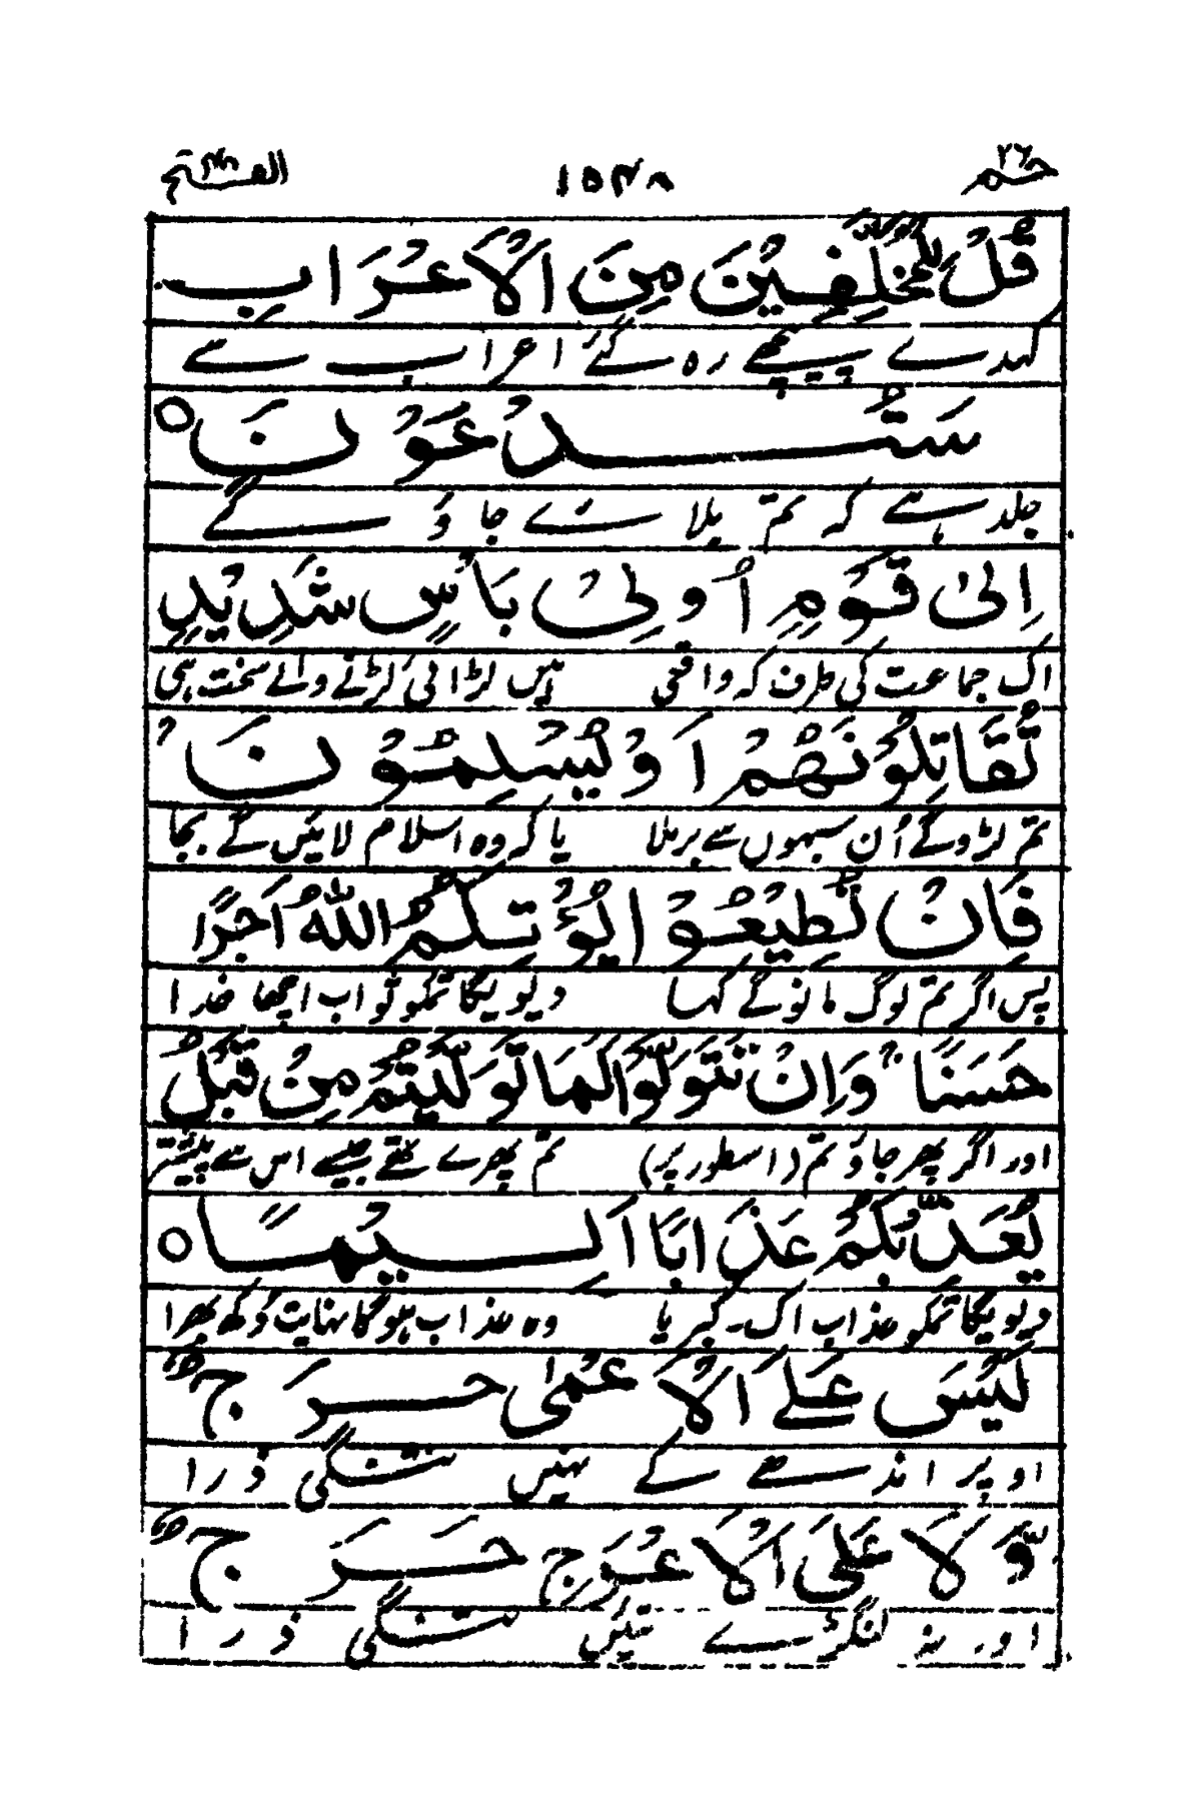 حٰمٓ ٢٦ ١٥٣٨ الفتح ٤٨
قُلْ لِّلْمُخَلَّفِيْنَ مِنَ الْاَعْرَابِ
کہدے پیچھے رہ گئے اعراب سے
سَتُدْعَوْنَ ○
جلد ہے کہ تم بلائے جاؤ گے
اِلٰى قَوْمٍ اُولِىْ بَاْسٍ شَدِيْدٍ
اک جماعت کی طرف کہ واقعی ہیں لڑائی لڑنے والے سخت ہی
تُقَاتِلُوْنَهُمْ اَوْ يُسْلِمُوْنَ ۚ
تم لڑوگے اُن سبھوں سے برملا یا کہ وہ اسلام لائیں گے بجا
فَاِنْ تُطِيْعُوْا يُؤْتِكُمُ اللّٰهُ اَجْرًا
پس اگر تم لوگ مانوگے کہا دیویگا تمکو ثواب اچھا خدا
حَسَنًا ۚ وَاِنْ تَتَوَلَّوْا كَمَا تَوَلَّيْتُمْ مِنْ قَبْلُ
اور اگر پھر جاؤ تم (اسطور پر) تم پھرے تھے جیسے اس سے پیشتر
يُعَذِّبْكُمْ عَذَابًا اَلِيْمًا ○
دیویگا تمکو عذاب اک کبریا وہ عذاب ہوگا نہایت دُکھ بھرا
لَيْسَ عَلَى الْاَعْمٰى حَرَجٌ
اوپر اندھے کے نہیں تنگی ذرا
وَّلَا عَلَى الْاَعْرَجِ حَرَجٌ
اور نہ لنگڑے نہیں تنگی ذرا